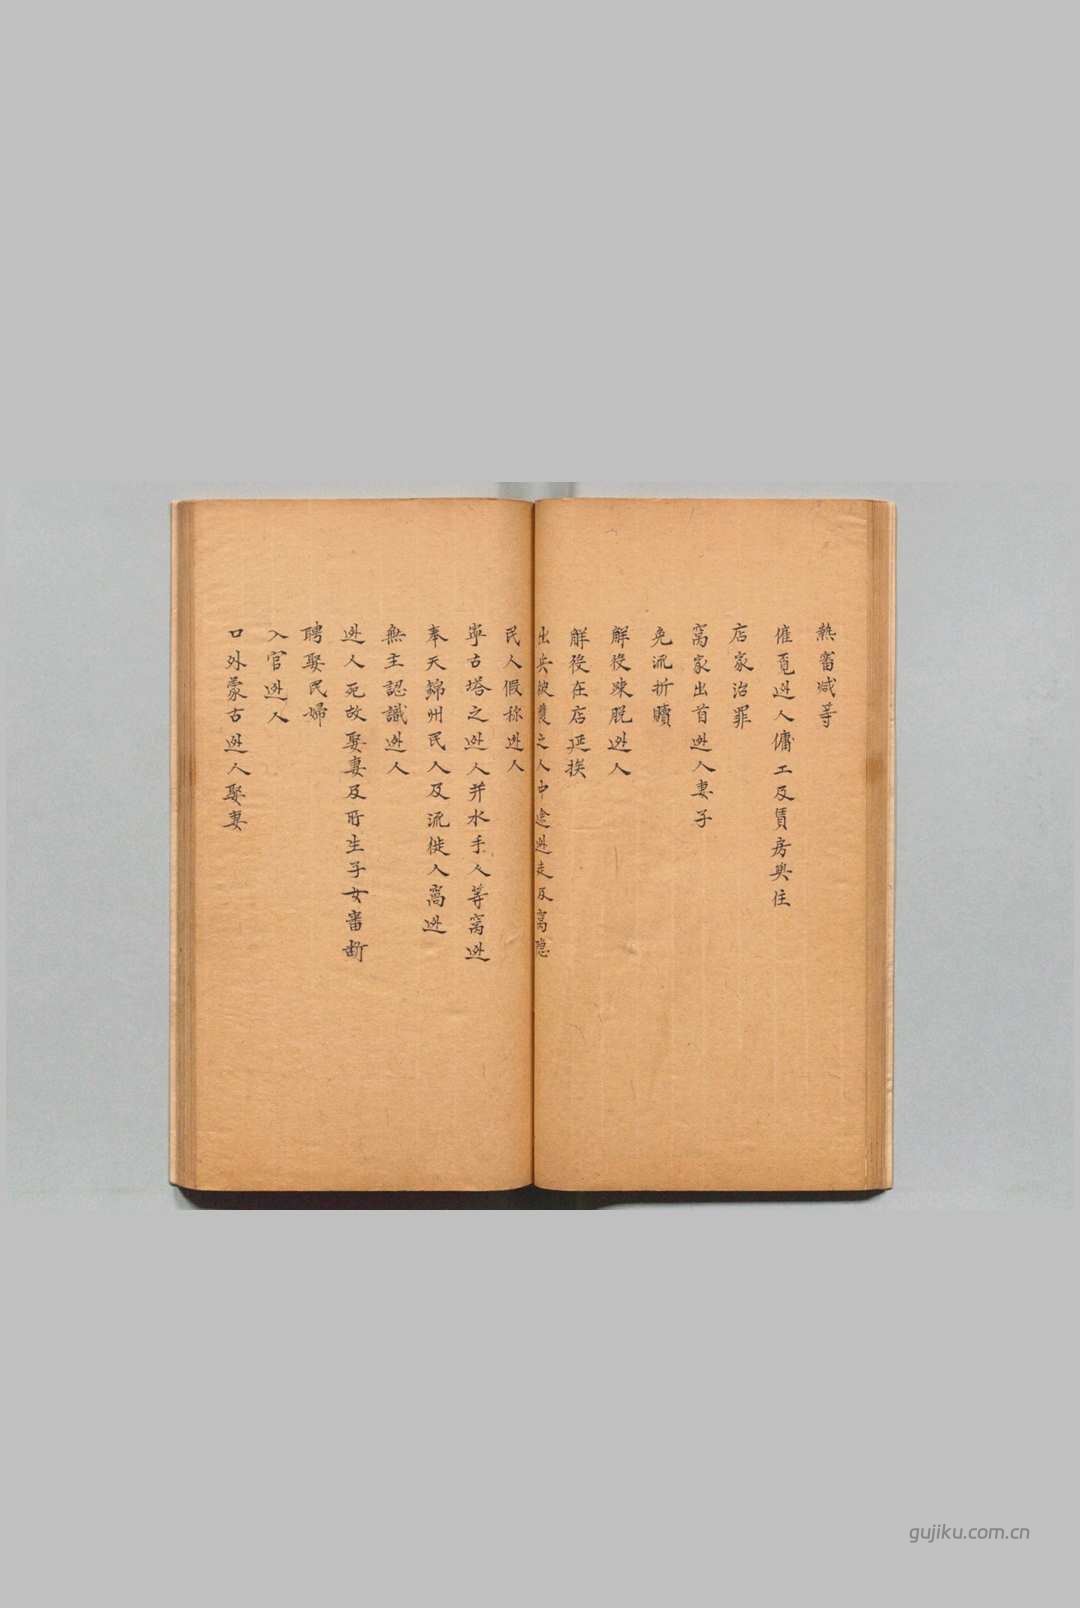 熱審减等
催覓逃人傭工及賃房與住
店家治罪
窩家出首逃人妻子
免流折贖
解役踈脫逃人
解役在店延挨
出兵被獲之人中途逃走及窩隱
民人假称逃人
寧古塔之逃人并水手人等窩逃
奉天錦州民人及流徙人窩逃
無主認識逃人
逃人死故娶妻及所生子女審斷
聘娶民婦
入官逃人
口外蒙古逃人娶妻
gujiku.com.cn